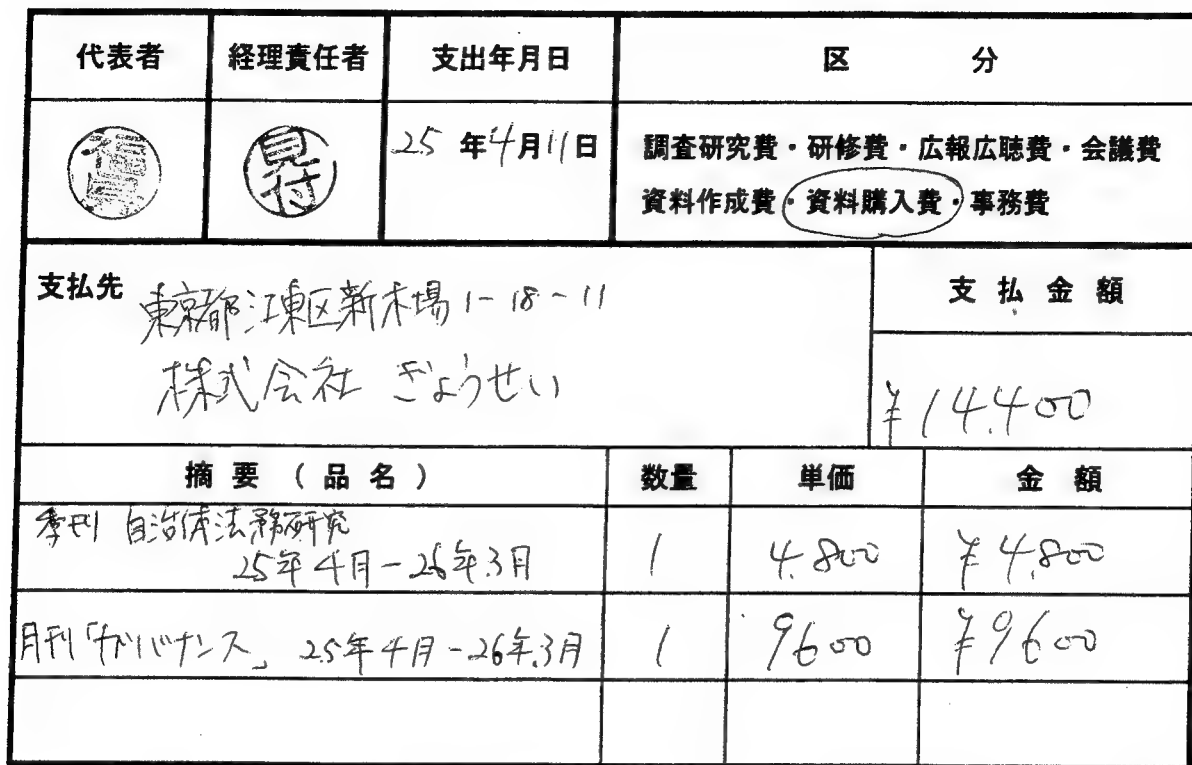 代表者 経理責任者 支出年月日 区 分
見付 25年4月11日 調査研究費・研修費・広報広聴費・会議費
資料作成費・資料購入費・事務費
支払先 東京都江東区新木場1-18-11
株式会社 ぎょうせい
支払金額
¥14,400
摘要(品名) 数量 単価 金額
季刊 自治体法務研究
25年4月-26年3月 1 4,800 ¥4,800
月刊「ガバナンス」 25年4月-26年3月 1 9600 ¥9600